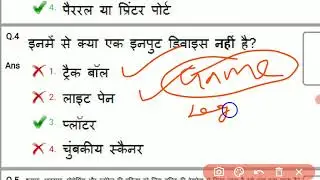 4. पैररल या प्रिंटर पोर्ट
Q.4 इनमें से क्या एक इनपुट डिवाइस नहीं है?
Ans 1. ट्रैक बॉल
Game
2. लाइट पेन
3. प्लॉटर
4. चुंबकीय स्कैनर